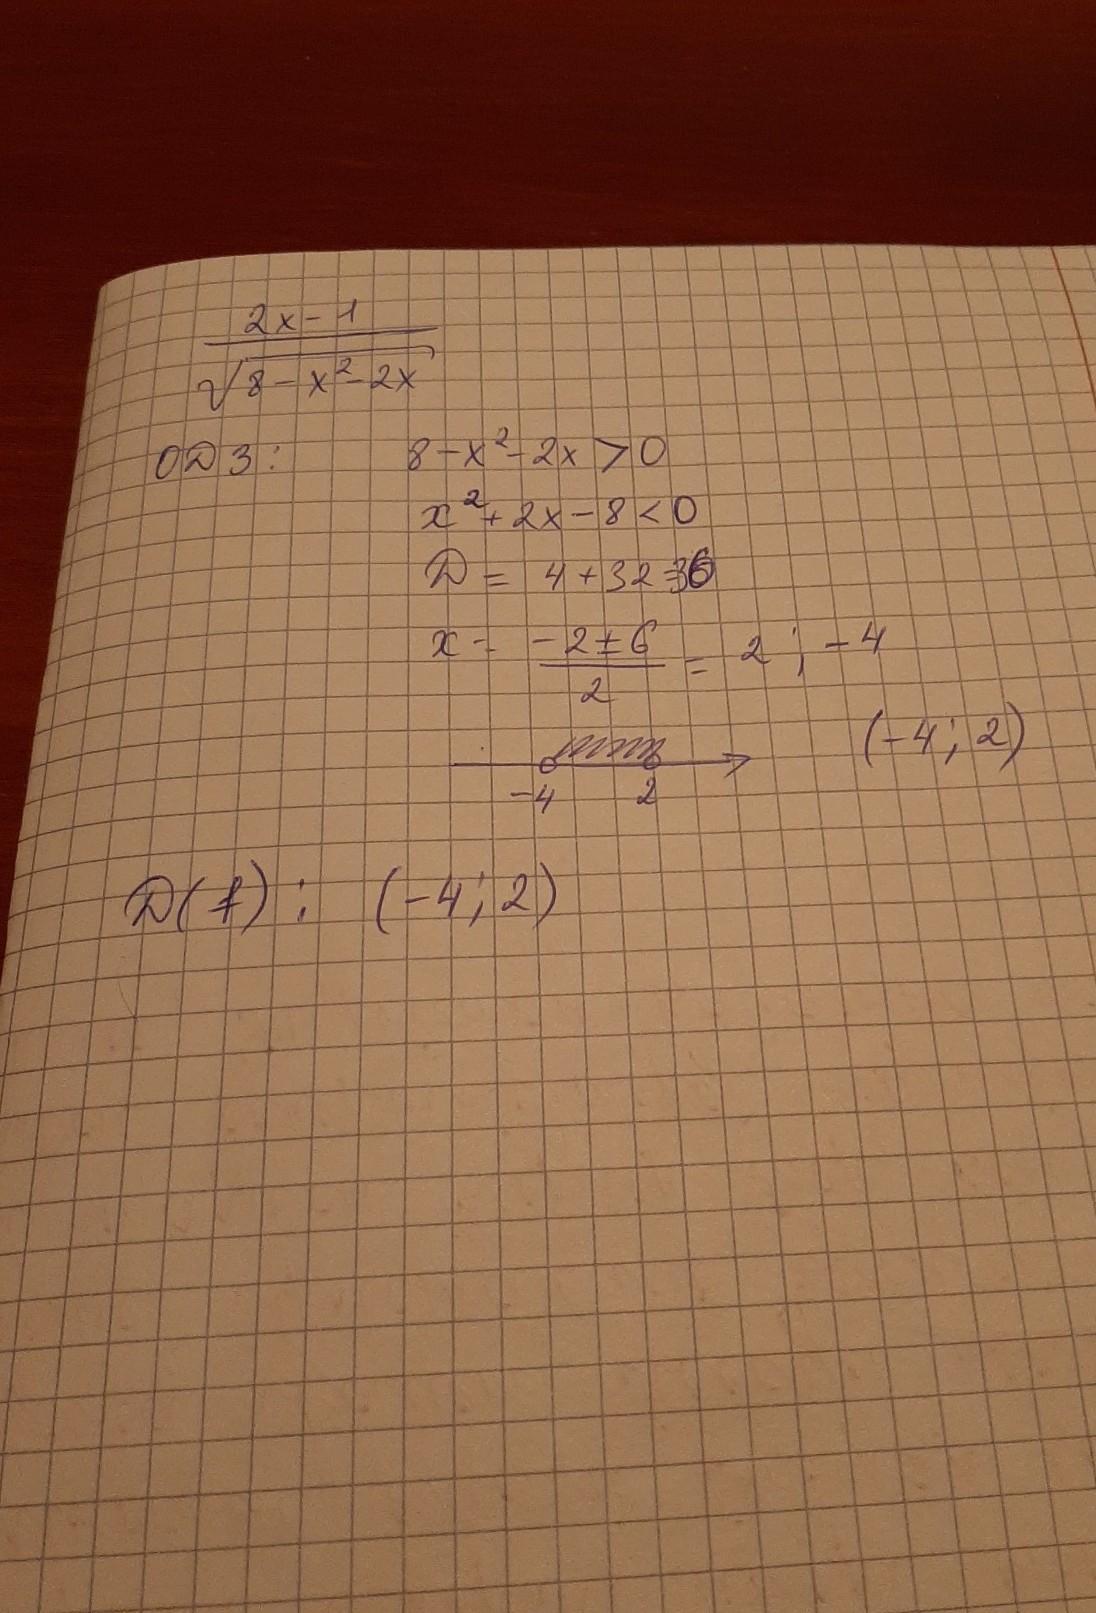 2x-1
√8-x²-2x
ОДЗ: 8-x²-2x>0
x²+2x-8<0
D = 4+32=36
x = -2±6
2 = 2; -4
(-4; 2)
-4 2
D(f): (-4; 2)